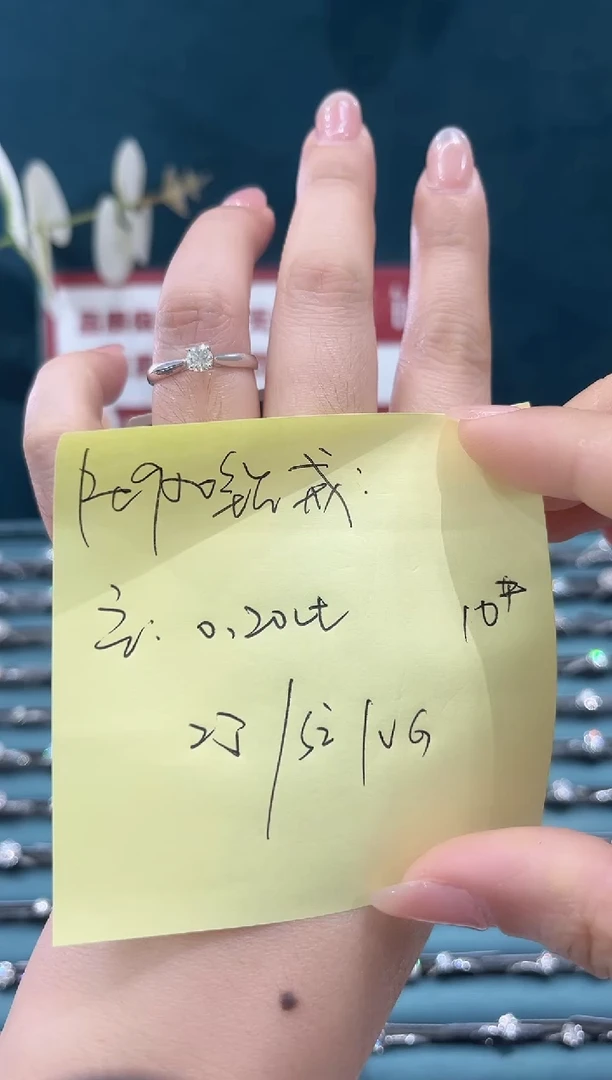 Pt950钻戒:
主: 0.20ct 10#
IJ/SI/VG